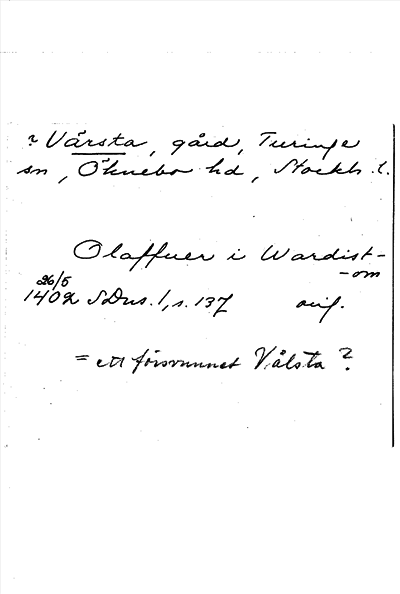 ? Vårsta, gård, Turinge
sn, Öknebo hd, Stockh. l.
Olaffuer i Wardist-
-om
26/5
1402 SDns. 1, s. 137 avs.
= ett försvunnet Vålsta?